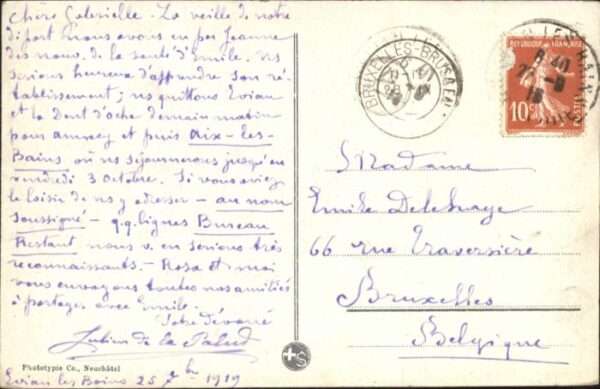 Chère Gabrielle - La veille de notre
départ nous avons eu par Jeanne
des nouv. de la santé d'Emile. Ns
serions heureux d'apprendre son ré-
tablissement; ns quittons Evian
et la Dent d'Oche demain matin
pour Annecy et puis Aix-les-
Bains où ns séjournerons jusqu'au
vendredi 3 Octobre. Si vous aviez
le loisir de ns y adresser - au nom
soussigné - q.q. lignes Bureau
Restant nous v. en serions très
reconnaissants. - Rosa et moi
vous envoyons toutes nos amitiés
à partager avec Emile.
Votre dévoué
Julien de la
Phototypie Co., Neuchâtel
Evian les Bains 25 7bre 1919
BRUXELLES-BRUSSEL
REPUBLIQUE FRANÇAISE
10c
POSTES
Madame
Emile Delehaye
66 rue Traversière
Bruxelles
Belgique